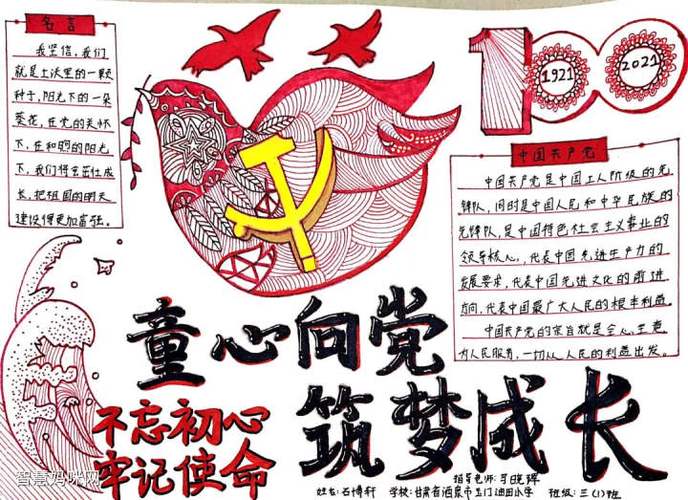 名言
我坚信，我们
就是土沃里的一颗
种子，阳光下的一朵
葵花，在党的关怀
下，在和煦的阳光
下，我们将会茁壮成
长，把祖国的明天
建设得更加富强。
100
1921
2021
中国共产党
中国共产党是中国工人阶级的先
锋队，同时是中国人民和中华民族的
先锋队，是中国特色社会主义事业的
领导核心，代表中国先进生产力的
发展要求，代表中国先进文化的前进
方向，代表中国最广大人民的根本利益。
中国共产党的宗旨就是全心全意
为人民服务，一切从人民的利益出发。
童心向党
筑梦成长
不忘初心
牢记使命
智慧妈咪网
指导老师：
姓名：石博轩 学校：甘肃省酒泉市玉门油田小学 班级：三(1)班